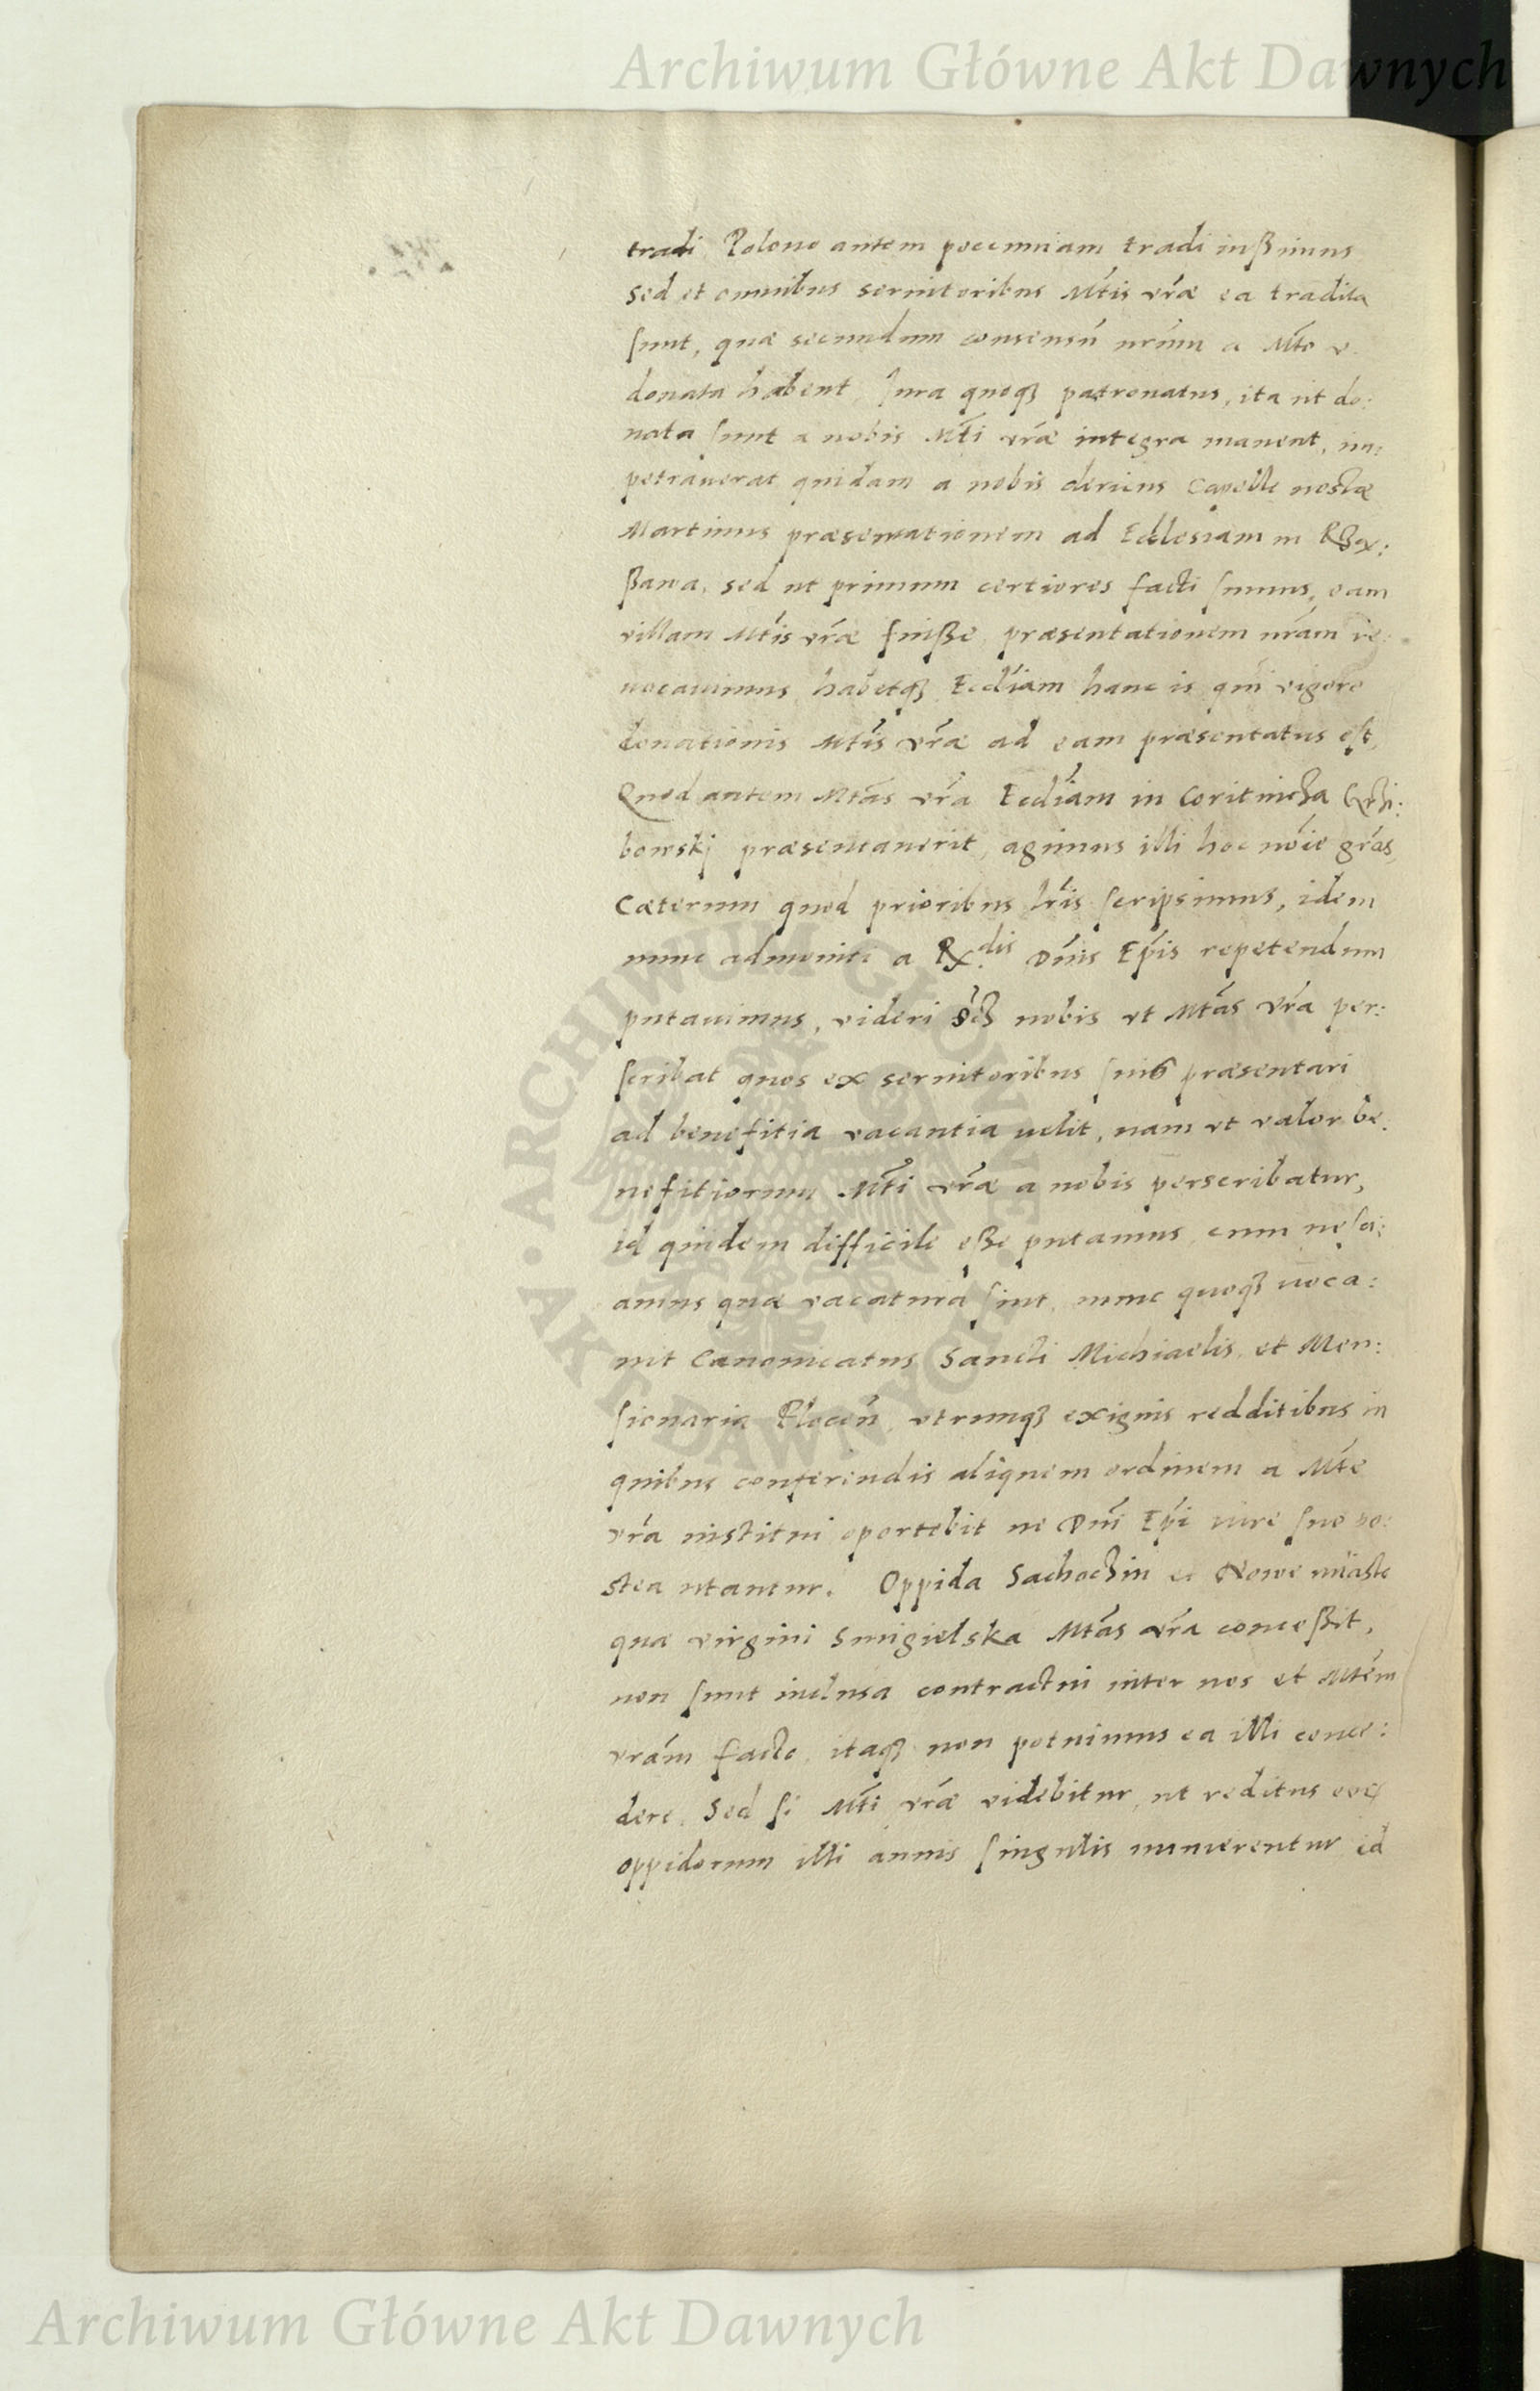 Archiwum Główne Akt Dawnych
tradi Polono autem poecuniam tradi iußimus
sed et omnibus seruitoribus Mtis vræ ea tradita
sunt, quæ secundum consensũ nrum a Mte v
donata habent, Iura quoqꝫ patronatus, ita ut do:
nata sunt a nobis Mti vræ integra manent, im:
petrauerat quidam a nobis clericus Capelle nostræ
Martinus præsentationem ad Ecclesiam in
ßawa, sed ut primum certiores facti sumus, eam
villam Mtis vræ fuiße, præsentationem nram re:
uocauimus, habetqꝫ Eccliam hanc is qui vigore
donationis Mtis vræ ad eam præsentatus est,
Quod autem Mtas vra Eccliam in Coritnicza
bowskj præsentauerit, agimus illi hoc noie gras,
Cæterum quod prioribus lris scripsimus, idem
nunc admoniti a R.dis Dnis Epis repetendum
putauimus, videri sꝫ nobis ut Mtas vra per:
scribat quos ex seruitoribus suis præsentari
ad benefitia vacantia uelit, nam ut valor be:
nefitiorum Mti vræ a nobis perscribatur,
id quidem difficile eße putamus, cum nesci:
amus quæ vacatura sint, nunc quoqꝫ uoca:
nit Canonicatus Sancti Michiaelis, et Men:
sionaria Plocen̄, vtrumqꝫ exiguis redditibus in
quibus conferendis aliquem ordinem a Mte
vra institui oportebit ne Dni Epi iure suo po:
stea utantur. Oppida Sachoczin et Nowe miasto
quæ virgini Smigielska Mtas vra conceßit,
non sunt inclusa contractui inter nos et Mtem
vram facto, itaqꝫ non potuimus ea illi conce:
dere, Sed si Mti vræ videbitur, ut reditus eor
oppidorum illi annis singulis numerentur id
ARCHIWUM GŁÓWNE · AKT DAWNYCH ·
Archiwum Główne Akt Dawnych